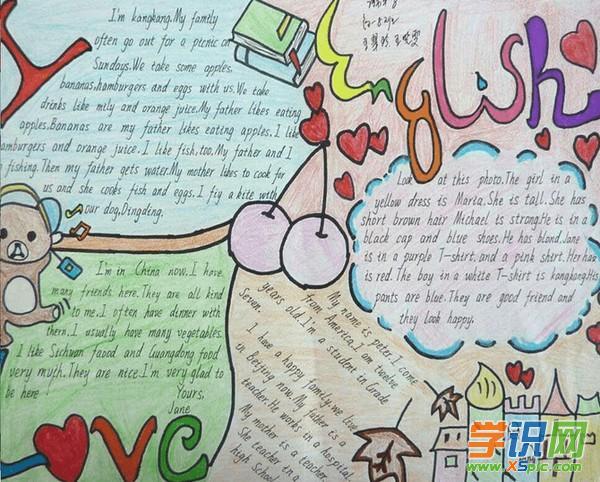 I'm kangkang.My family
often go out for a picnic on
Sundays.We take some apples,
bananas,hamburgers and eggs with us.We take
drinks like mily and orange juice.My father likes eating
apples.Bananas are my father likes eating apples.I like
hamburgers and orange juice.I like fish,too.My father and I
fishing.Then my father gets water.My mother likes to cook for
us and she cooks fish and eggs.I fiy a kite with
our dog,Dingding.
English
Look at this photo.The girl in a
yellow dress is Maria.She is tall.She has
short brown hair Michael is strong.He is in a
black cap and blue shoes.He has blond.Jane
is in a purple T-shirt.and a pink shirt.Her has
is red.The boy in a white T-shirt is kangkang.His
pants are blue.They are good friend and
they look happy.
I'm in China now.I have
many friends here.They are all kind
to me.I often have dinner with
them.I usually have many vegetables.
I like Sichuan faood and Guangdong food
very myth.They are nice.I'm very glad to
be here!
Yours,
Jane
My name is peter.I come
from America.I am twelve
years old.I'm a student in Grade
Seven.
I have a happy family.we live
in Beijing now.My father is a
teacher.He works in a hospital
My mother is a teacher.
She teacher in a
high School.
LOVE
学识网
www.xspic.com